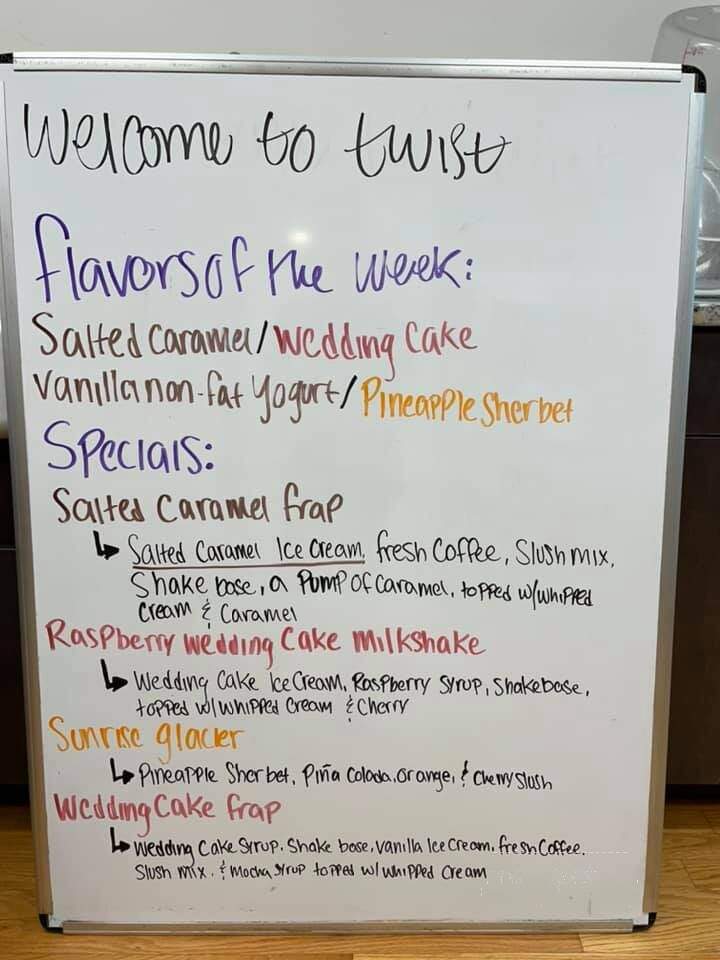 Welcome to twist
flavors of the week:
Salted Caramel/Wedding Cake
Vanilla non-fat Yogurt/Pineapple Sherbet
Specials:
Salted Caramel frap
Salted Caramel Ice Cream, fresh Coffee, Slush mix,
Shake base, a Pump of Caramel, topped w/whipped
Cream & Caramel
Raspberry Wedding Cake Milkshake
Wedding Cake Ice Cream, Raspberry Syrup, Shakebase,
topped w/ whipped Cream & Cherry
Sunrise glacier
Pineapple Sherbet, Piña Colada, Orange, & Cherry Slush
Wedding Cake frap
Wedding Cake Syrup, Shake base, vanilla Ice Cream, fresh Coffee,
Slush mix, & Mocha Syrup topped w/ whipped Cream